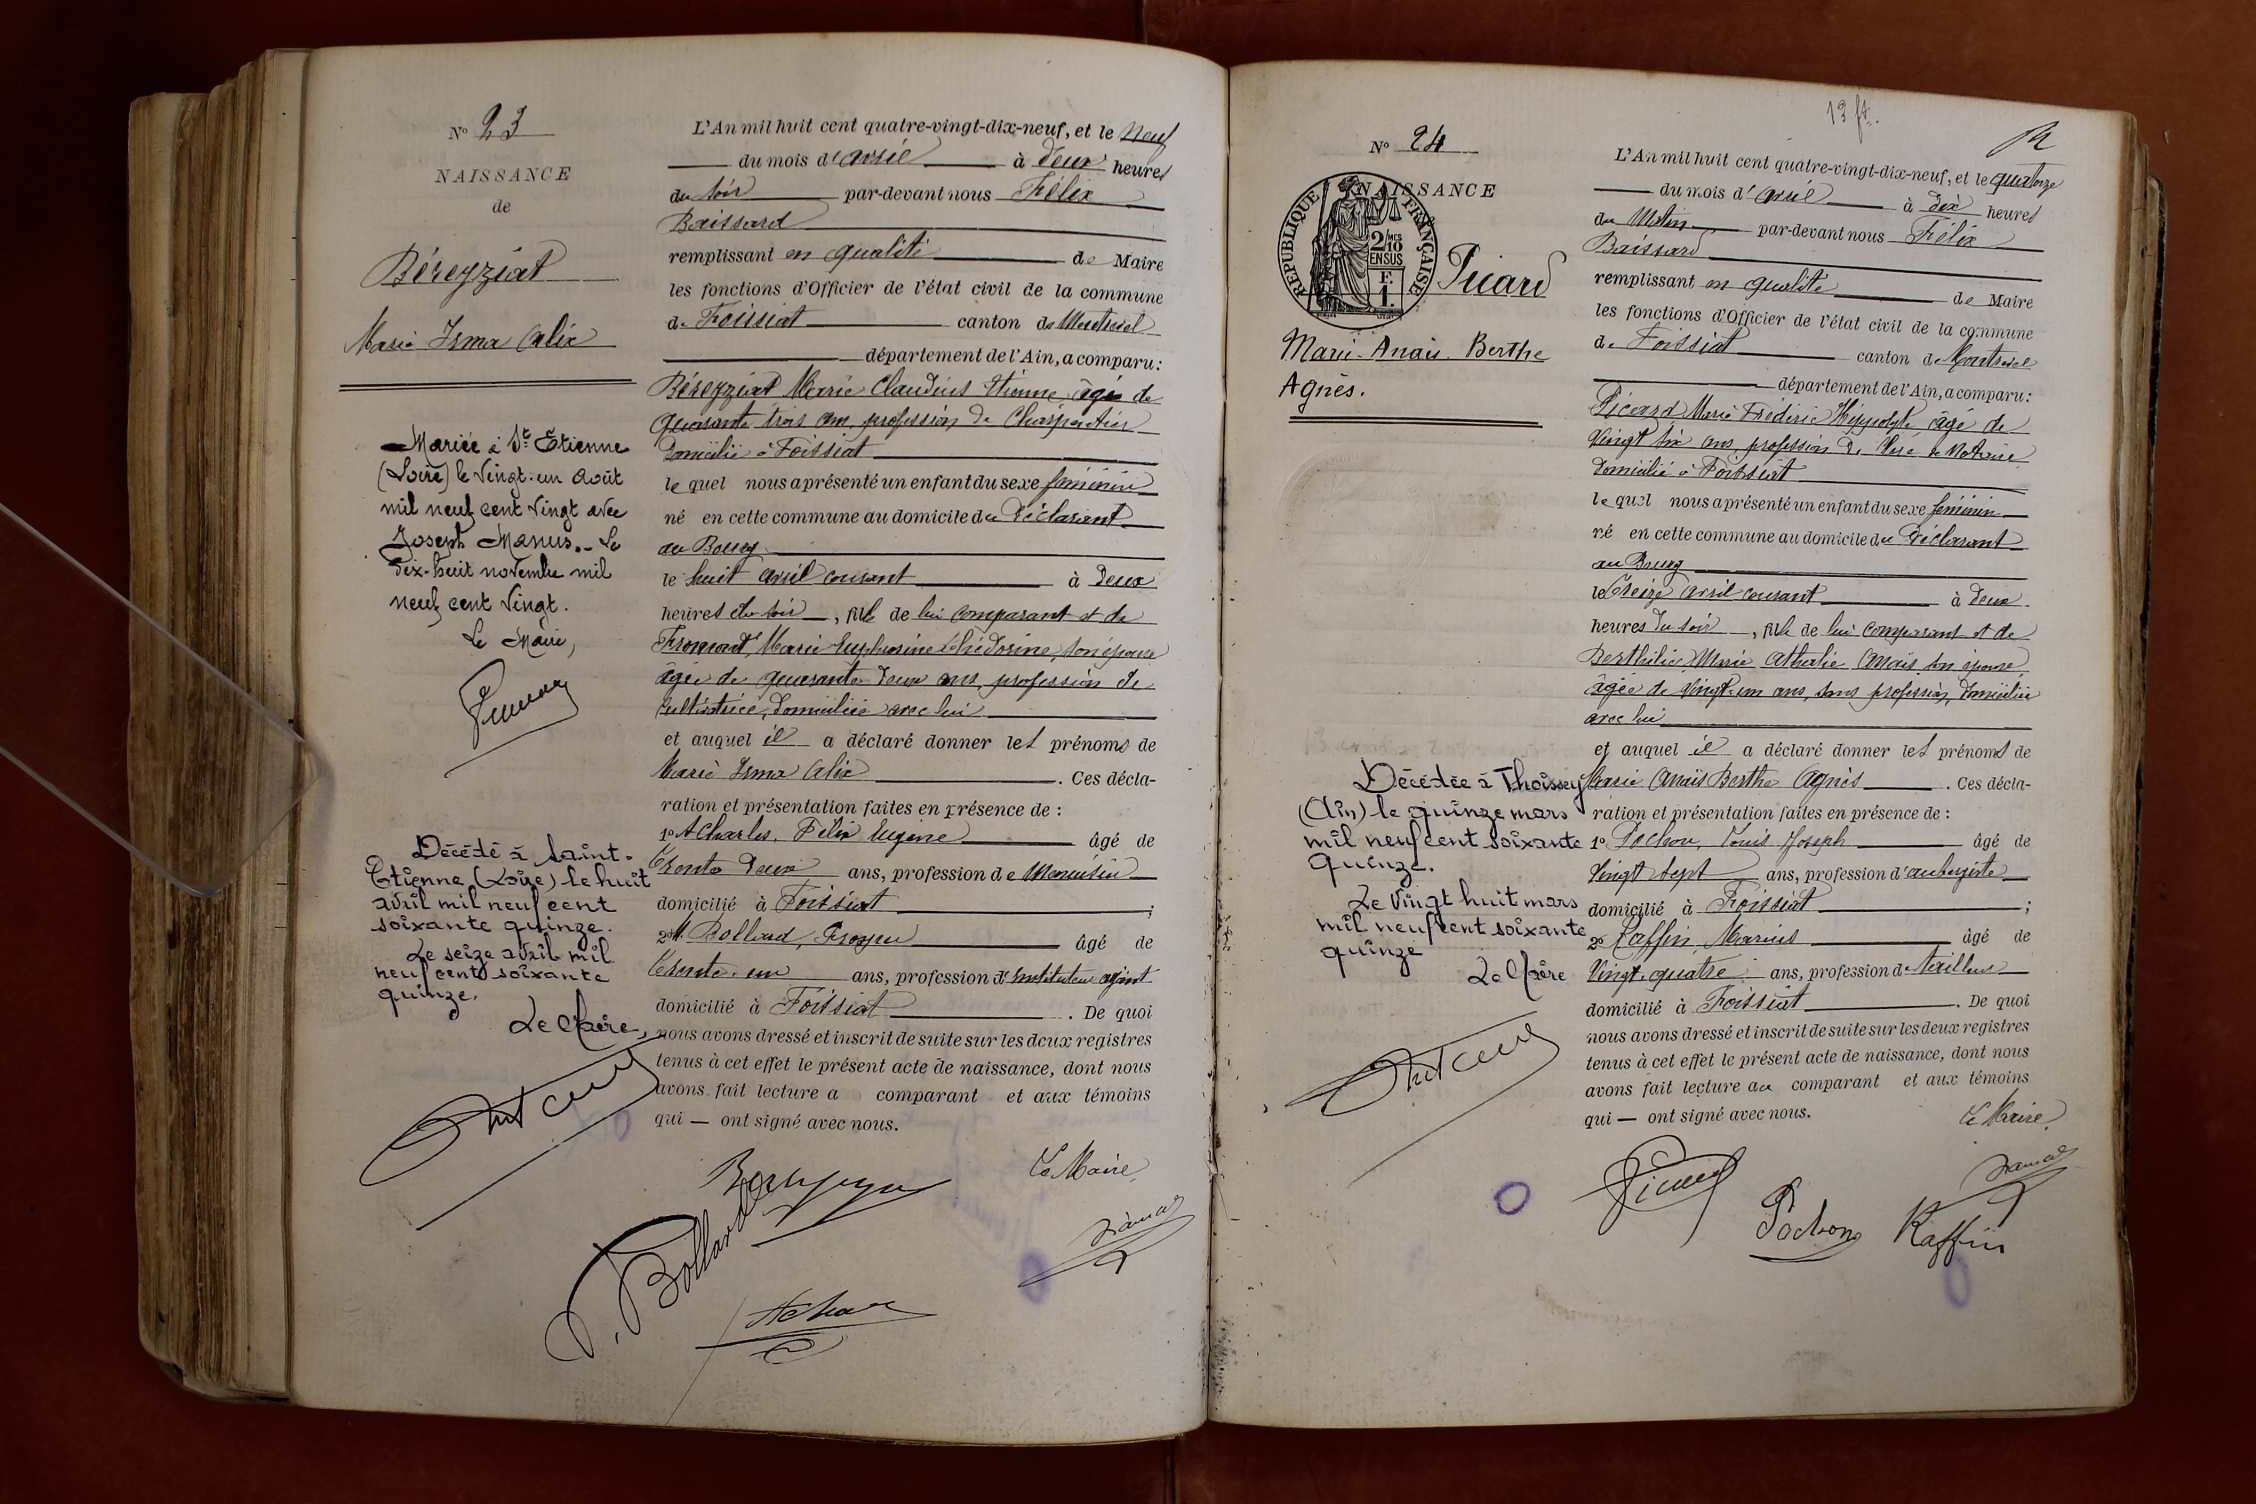 Nº 23
NAISSANCE
de
Béreyziat
Marie Irma Alix
Mariée à St Etienne
(Loire) le vingt-un août
mil neuf cent vingt avec
Joseph Manus. - Le
dix-huit novembre mil
neuf cent vingt.
Le Maire,
Décédé à Saint-
Etienne (Loire) le huit
avril mil neuf cent
soixante quinze.
Le seize avril mil
neuf cent soixante
quinze.
Le Maire,
L'An mil huit cent quatre-vingt-dix-neuf, et le Neuf
du mois d'avril à deux heures
du soir par-devant nous Félix
Baissard
remplissant en qualité de Maire
les fonctions d'Officier de l'état civil de la commune
de Foissiat canton de Montrevel
département de l'Ain, a comparu :
Béreyziat Marie Claudius Etienne, âgé de
quarante trois ans, profession de Charpentier
domicilié à Foissiat
lequel nous a présenté un enfant du sexe féminin
né en cette commune au domicile du Déclarant
au Bourg
le huit avril courant à deux
heures du soir, fille de lui comparant et de
Marie Euphrosine son épouse
âgée de quarante-deux ans, profession de
cultivatrice, domiciliée avec lui
et auquel il a déclaré donner les prénoms de
Marie Irma Alix. Ces décla-
ration et présentation faites en présence de :
1º Félix Eugène âgé de
Trente deux ans, profession de Menuisier
domicilié à Foissiat ;
2º Bollard, Prosper âgé de
Trente-un ans, profession d'instituteur adjoint
domicilié à Foissiat. De quoi
nous avons dressé et inscrit de suite sur les deux registres
tenus à cet effet le présent acte de naissance, dont nous
avons fait lecture a comparant et aux témoins
qui — ont signé avec nous.
Le Maire,
P. Bollard
13 ft.
Nº 24
NAISSANCE
REPUBLIQUE FRANÇAISE
2/10 MES
EN SUS
F.
1.
Picard
Marie-Anaïs-Berthe
Agnès.
Décédée à Thoissey
(Ain) le quinze mars
mil neuf cent soixante
quinze.
Le vingt huit mars
mil neuf cent soixante
quinze
Le Maire
L'An mil huit cent quatre-vingt-dix-neuf, et le quatorze
du mois d'avril à dix heures
du Matin par-devant nous Félix
Baissard
remplissant en qualité de Maire
les fonctions d'Officier de l'état civil de la commune
de Foissiat canton de Montrevel
département de l'Ain, a comparu :
Picard Marie Frédéric Hippolyte âgé de
Vingt six ans, profession de Clerc de Notaire
domicilié à Foissiat
lequel nous a présenté un enfant du sexe féminin
né en cette commune au domicile du Déclarant
au Bourg
le Treize avril courant à deux
heures du soir, fille de lui comparant et de
Marie Athalie Anaïs son épouse
âgée de vingt-un ans, sans profession, domiciliée
avec lui
et auquel il a déclaré donner les prénoms de
Marie Anaïs Berthe Agnès. Ces décla-
ration et présentation faites en présence de :
1º Pochon, Louis Joseph âgé de
Vingt sept ans, profession d'aubergiste
domicilié à Foissiat ;
2º Raffin Marius âgé de
Vingt-quatre ans, profession de tailleur
domicilié à Foissiat. De quoi
nous avons dressé et inscrit de suite sur les deux registres
tenus à cet effet le présent acte de naissance, dont nous
avons fait lecture au comparant et aux témoins
qui — ont signé avec nous.
Le Maire,
Picard
Pochon
Raffin